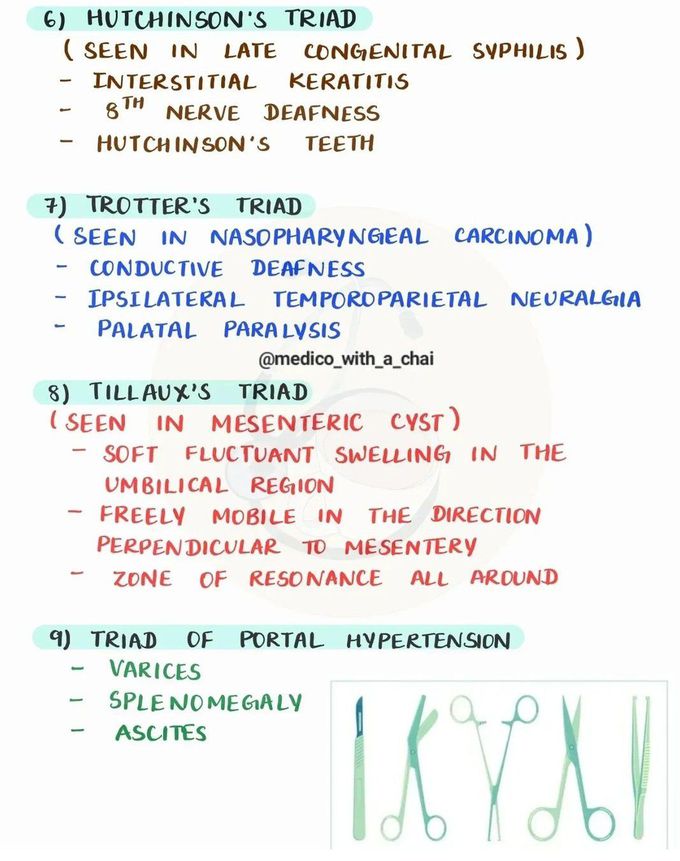 6) HUTCHINSON'S TRIAD
( SEEN IN LATE CONGENITAL SYPHILIS )
- INTERSTITIAL KERATITIS
- 8TH NERVE DEAFNESS
- HUTCHINSON'S TEETH
7) TROTTER'S TRIAD
( SEEN IN NASOPHARYNGEAL CARCINOMA )
- CONDUCTIVE DEAFNESS
- IPSILATERAL TEMPOROPARIETAL NEURALGIA
- PALATAL PARALYSIS
@medico_with_a_chai
8) TILLAUX'S TRIAD
( SEEN IN MESENTERIC CYST )
- SOFT FLUCTUANT SWELLING IN THE
UMBILICAL REGION
- FREELY MOBILE IN THE DIRECTION
PERPENDICULAR TO MESENTERY
- ZONE OF RESONANCE ALL AROUND
9) TRIAD OF PORTAL HYPERTENSION
- VARICES
- SPLENOMEGALY
- ASCITES